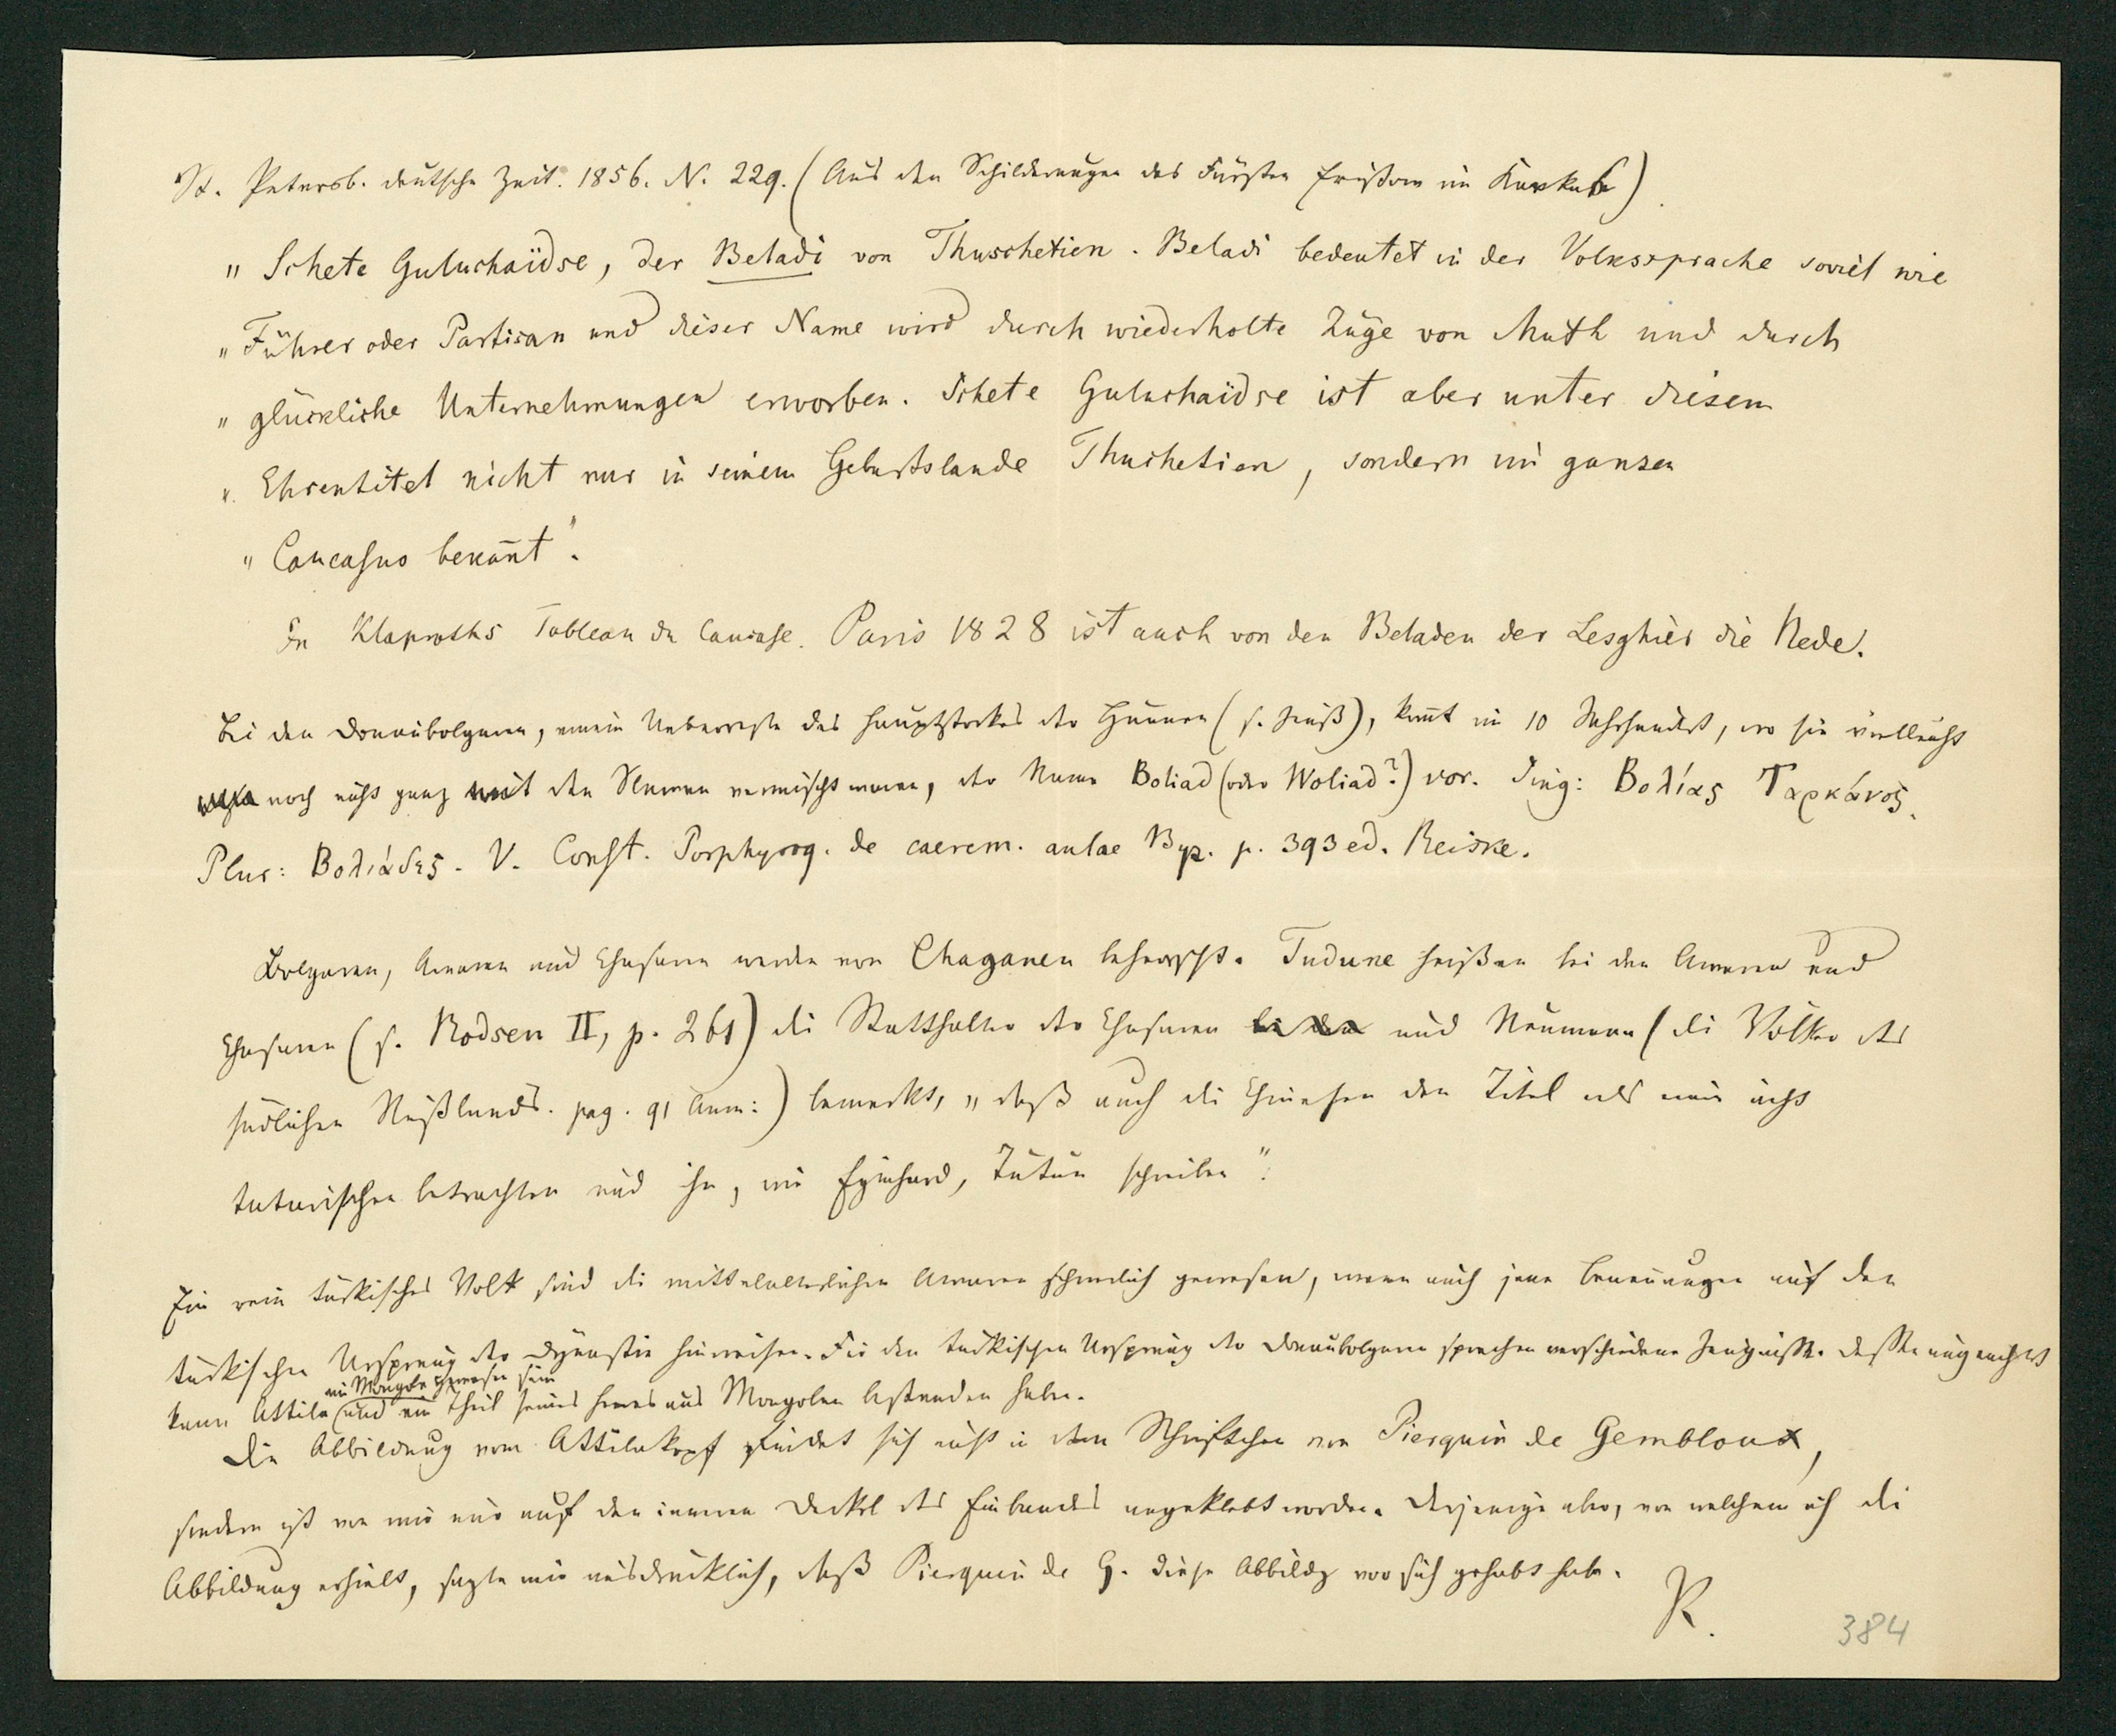 St. Petersb. deutsche Zeit. 1856. N. 229. (Aus den Schilderungen des Fürsten Eristow im Kaukas)
„ Schete Guluchaïdse, der Beladi von Thuschetien. Beladi bedeutet in der Volkssprache soviel wie
„ Führer oder Partisan und dieser Name wird durch wiederholte Züge von Muth und durch
„ glückliche Unternehmungen erworben. Schete Guluchaïdse ist aber unter diesem
„ Ehrentitel nicht nur in seinem Geburtslande Thuschetien, sondern im ganzen
„ Caucasus bekañt".
In Klaproths Tableau du Caucase. Paris 1828 ist auch von den Beladen der Lesghier die Rede.
Bei den Donaubolgaren, einem Ueberreste des Hauptstockes der Hunnen (s. Zeuß), kom̃t im 10 Jahrhundert, wo sie vielleicht
noch nicht ganz mit den Slawen vermischt waren, der Name Boliad (oder Woliad?) vor. Sing: Βολίας Ταρκάνος.
Plur: Βολιάδες. V. Const. Porphyrog. de caerem. aulae Byz. p. 393 ed. Reiske.
Bolgaren, Awaren und Chasaren werden von Chaganen beherrscht. Tudune heißen bei den Awaren und
Chasaren (s. Rodsen II, p. 261) die Statthalter der Chasaren bei den und Neumann (die Völker des
südlichen Rußlands. pag. 91 Anm:) bemerkt, „daß auch die Chinesen den Titel als einen ächt
tatarischen betrachten und ihn, wie Eginhard, Tutun schreiben".
Ein rein türkisches Volk sind die mittelalterlichen Awaren schwerlich gewesen, wenn auch jene Benennungen auf den
türkischen Ursprung der Dynastie hinweisen. Für den türkischen Ursprung der Donaubolgaren sprechen verschiedene Zeugnisse. Dessen ungeachtet
ein Mongole gewesen sein
kann Attila und ein Theil seines Heeres aus Mongolen bestanden haben.
Die Abbildung vom Attilakopf findet sich nicht in dem Schriftchen von Pierquin de Gembloux,
sondern ist von mir nur auf den innern Deckel des Einbandes angeklebt worden. Derjenige aber, von welchem ich die
Abbildung erhielt, sagte mir ausdrücklich, daß Pierquin de G. diese Abbildg vor sich gehabt habe.
K.
384